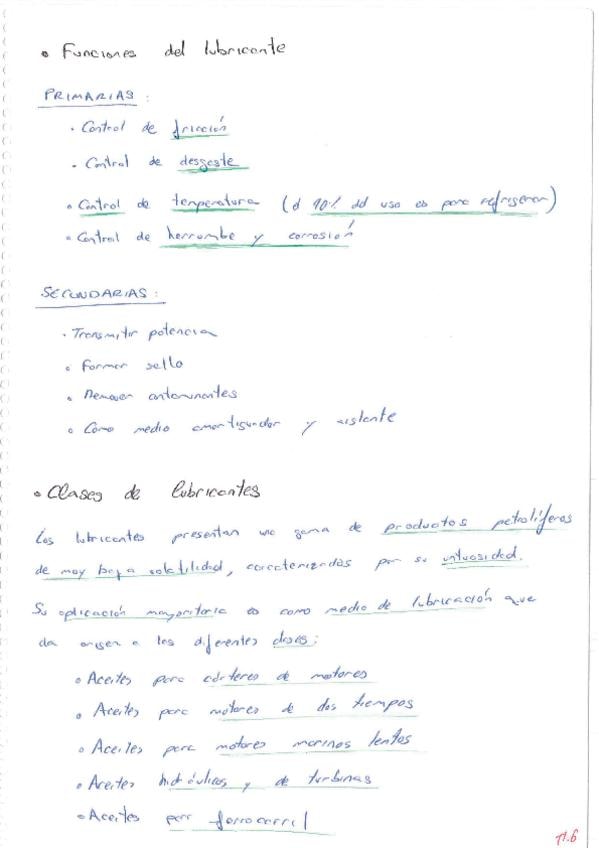 • Funciones del lubricante
PRIMARIAS:
• Control de fricción
• Control de desgaste
• Control de temperatura (el 90% del uso es para refrigerar)
• Control de herrumbe y corrosión
SECUNDARIAS:
• Transmitir potencia
• Formar sello
• Remover contaminantes
• Como medio amortiguador y aislante
• Clases de lubricantes
Los lubricantes presentan una gama de productos petrolíferos
de muy baja volatilidad, caracterizados por su untuosidad.
Su aplicación mayoritaria es como medio de lubricación que
da origen a las diferentes clases:
• Aceites para cárteres de motores
• Aceites para motores de dos tiempos
• Aceites para motores marinos lentos
• Aceites hidráulicos y de turbinas
• Aceites para ferrocarril